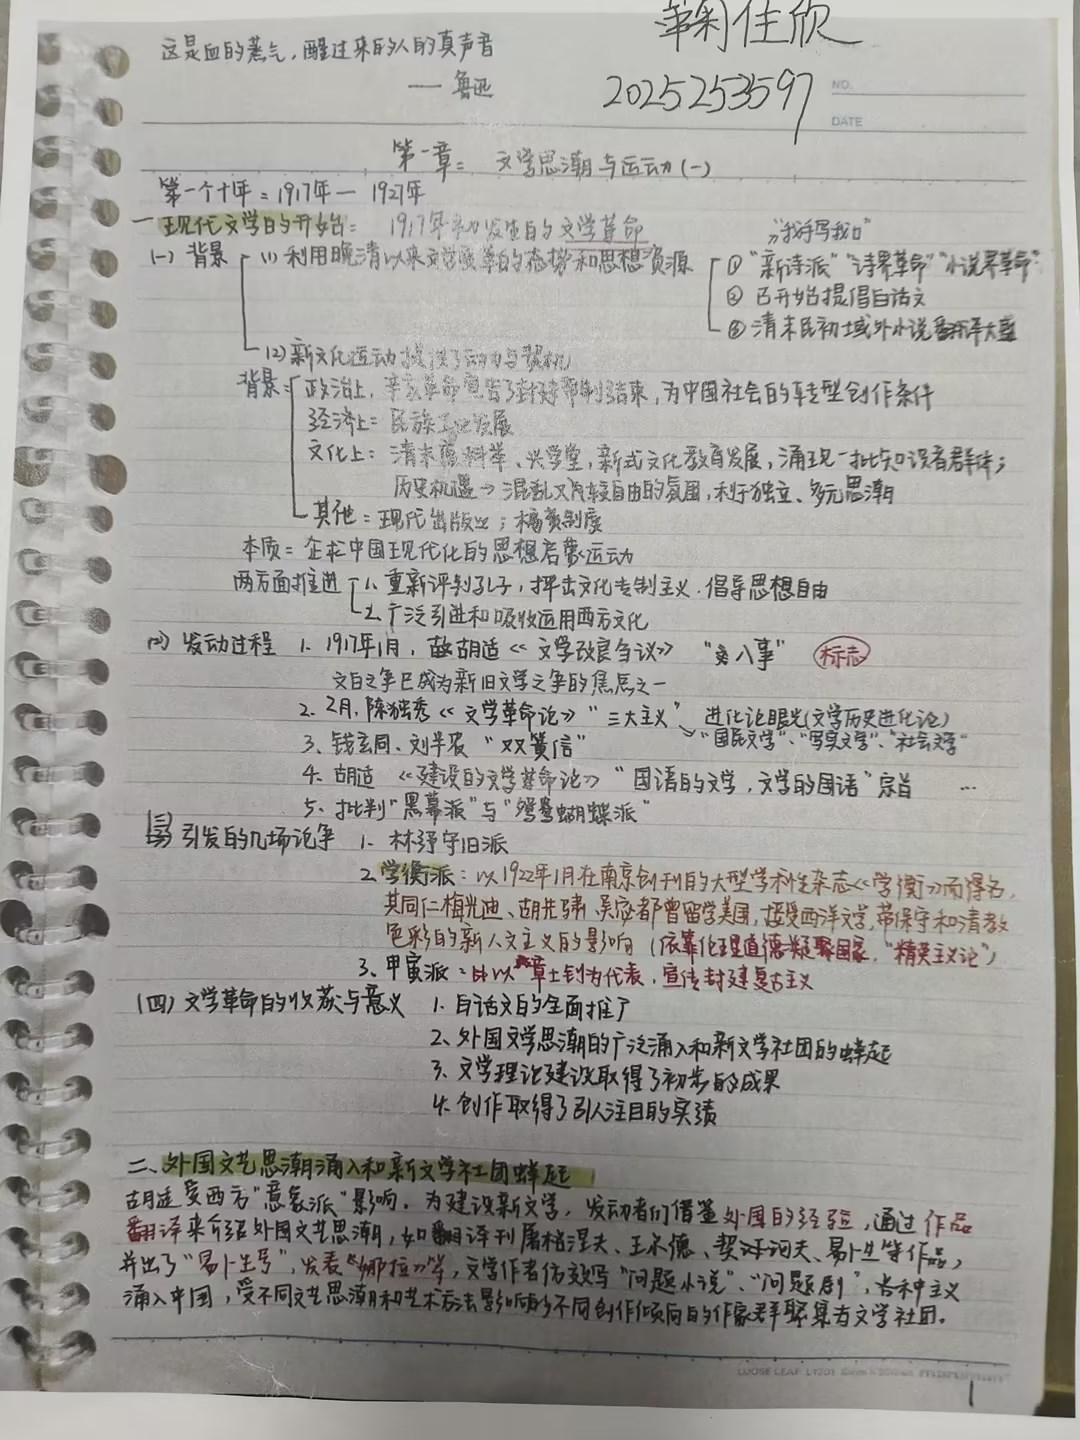 鞠佳欣
2025253597
这是血的蒸气，醒过来的人的真声音
—— 鲁迅
NO.
DATE
第一章：文学思潮与运动(一)
第一个十年：1917年— 1927年
一 现代文学的开始：1917年初发生的文学革命
"我手写我口"
(一) 背景 (1) 利用晚清以来文学变革的态势和思想资源
① "新诗派" "诗界革命" "小说界革命"
② 已开始提倡白话文
③ 清末民初域外小说翻译大盛
(2) 新文化运动提供了动力与契机
背景：政治上，辛亥革命宣告了封建帝制结束，为中国社会的转型创作条件
经济上：民族工业发展
文化上：清末废科举、兴学堂，新式文化教育发展，涌现一批知识者群体；
历史机遇→混乱又汽较自由的氛围，利于独立、多元思潮
其他：现代出版业；稿费制度
本质：企求中国现代化的思想启蒙运动
两方面推进 1. 重新评判孔子，抨击文化专制主义．倡导思想自由
2. 广泛引进和吸收运用西方文化
发动过程 1. 1917年1月，胡适《文学改良刍议》 "八事" 标志
文白之争已成为新旧文学之争的焦点之一
2. 2月，陈独秀《文学革命论》"三大主义" 进化论眼光(文学历史进化论)
"国民文学"、"写实文学"、"社会文学"
3、钱玄同、刘半农 "双簧信"
4. 胡适 《建设的文学革命论》 "国语的文学，文学的国语" 宗旨 …
5. 批判"黑幕派"与"鸳鸯蝴蝶派"
引发的几场论争 1. 林纾守旧派
2. 学衡派：以1922年1月在南京创刊的大型学术性杂志《学衡》而得名，
其同仁梅光迪、胡先骕、吴宓都曾留学美国，接受西洋文学，带保守和清教
色彩的新人文主义的影响（依靠伦理道德凝聚国家，"精英主义论"）
3. 甲寅派：以章士钊为代表，宣传封建复古主义
(四) 文学革命的收获与意义 1. 白话文的全面推广
2、外国文学思潮的广泛涌入和新文学社团的蜂起
3. 文学理论建设取得了初步的成果
4. 创作取得了引人注目的实绩
二、外国文艺思潮涌入和新文学社团蜂起
胡适受西方"意象派"影响．为建设新文学，发动者们借鉴外国的经验，通过作品
翻译来介绍外国文艺思潮，如翻译刊屠格涅夫、王尔德、契诃夫、易卜生等作品，
并出了"易卜生号"，发表《娜拉》等，文学作者仿效写"问题小说"、"问题剧"，各种主义
涌入中国，受不同文艺思潮和艺术方法影响的不同创作倾向的作家群聚集为文学社团。
LOOSE LEAF L1201
1